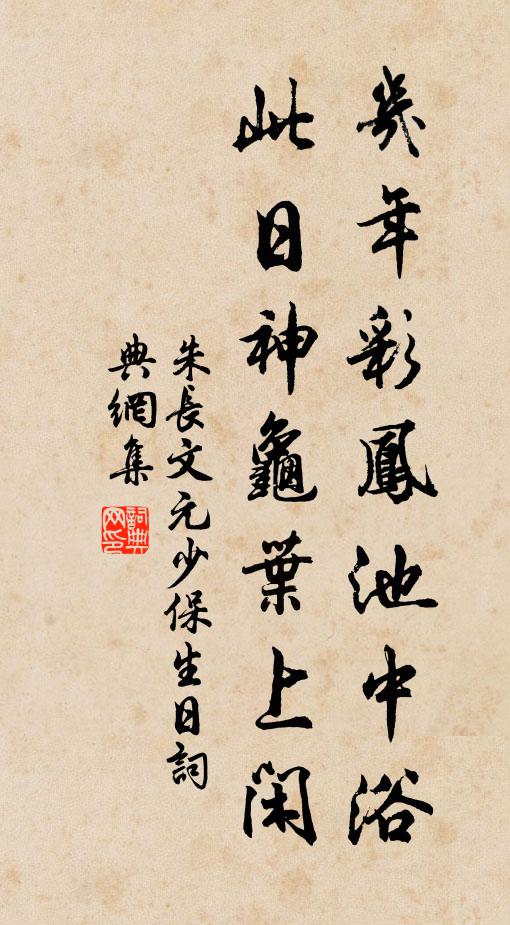 幾年彩鳳池中浴
此日神龜葉上閑
朱長文元少保生日詞
典網集
詞典网印